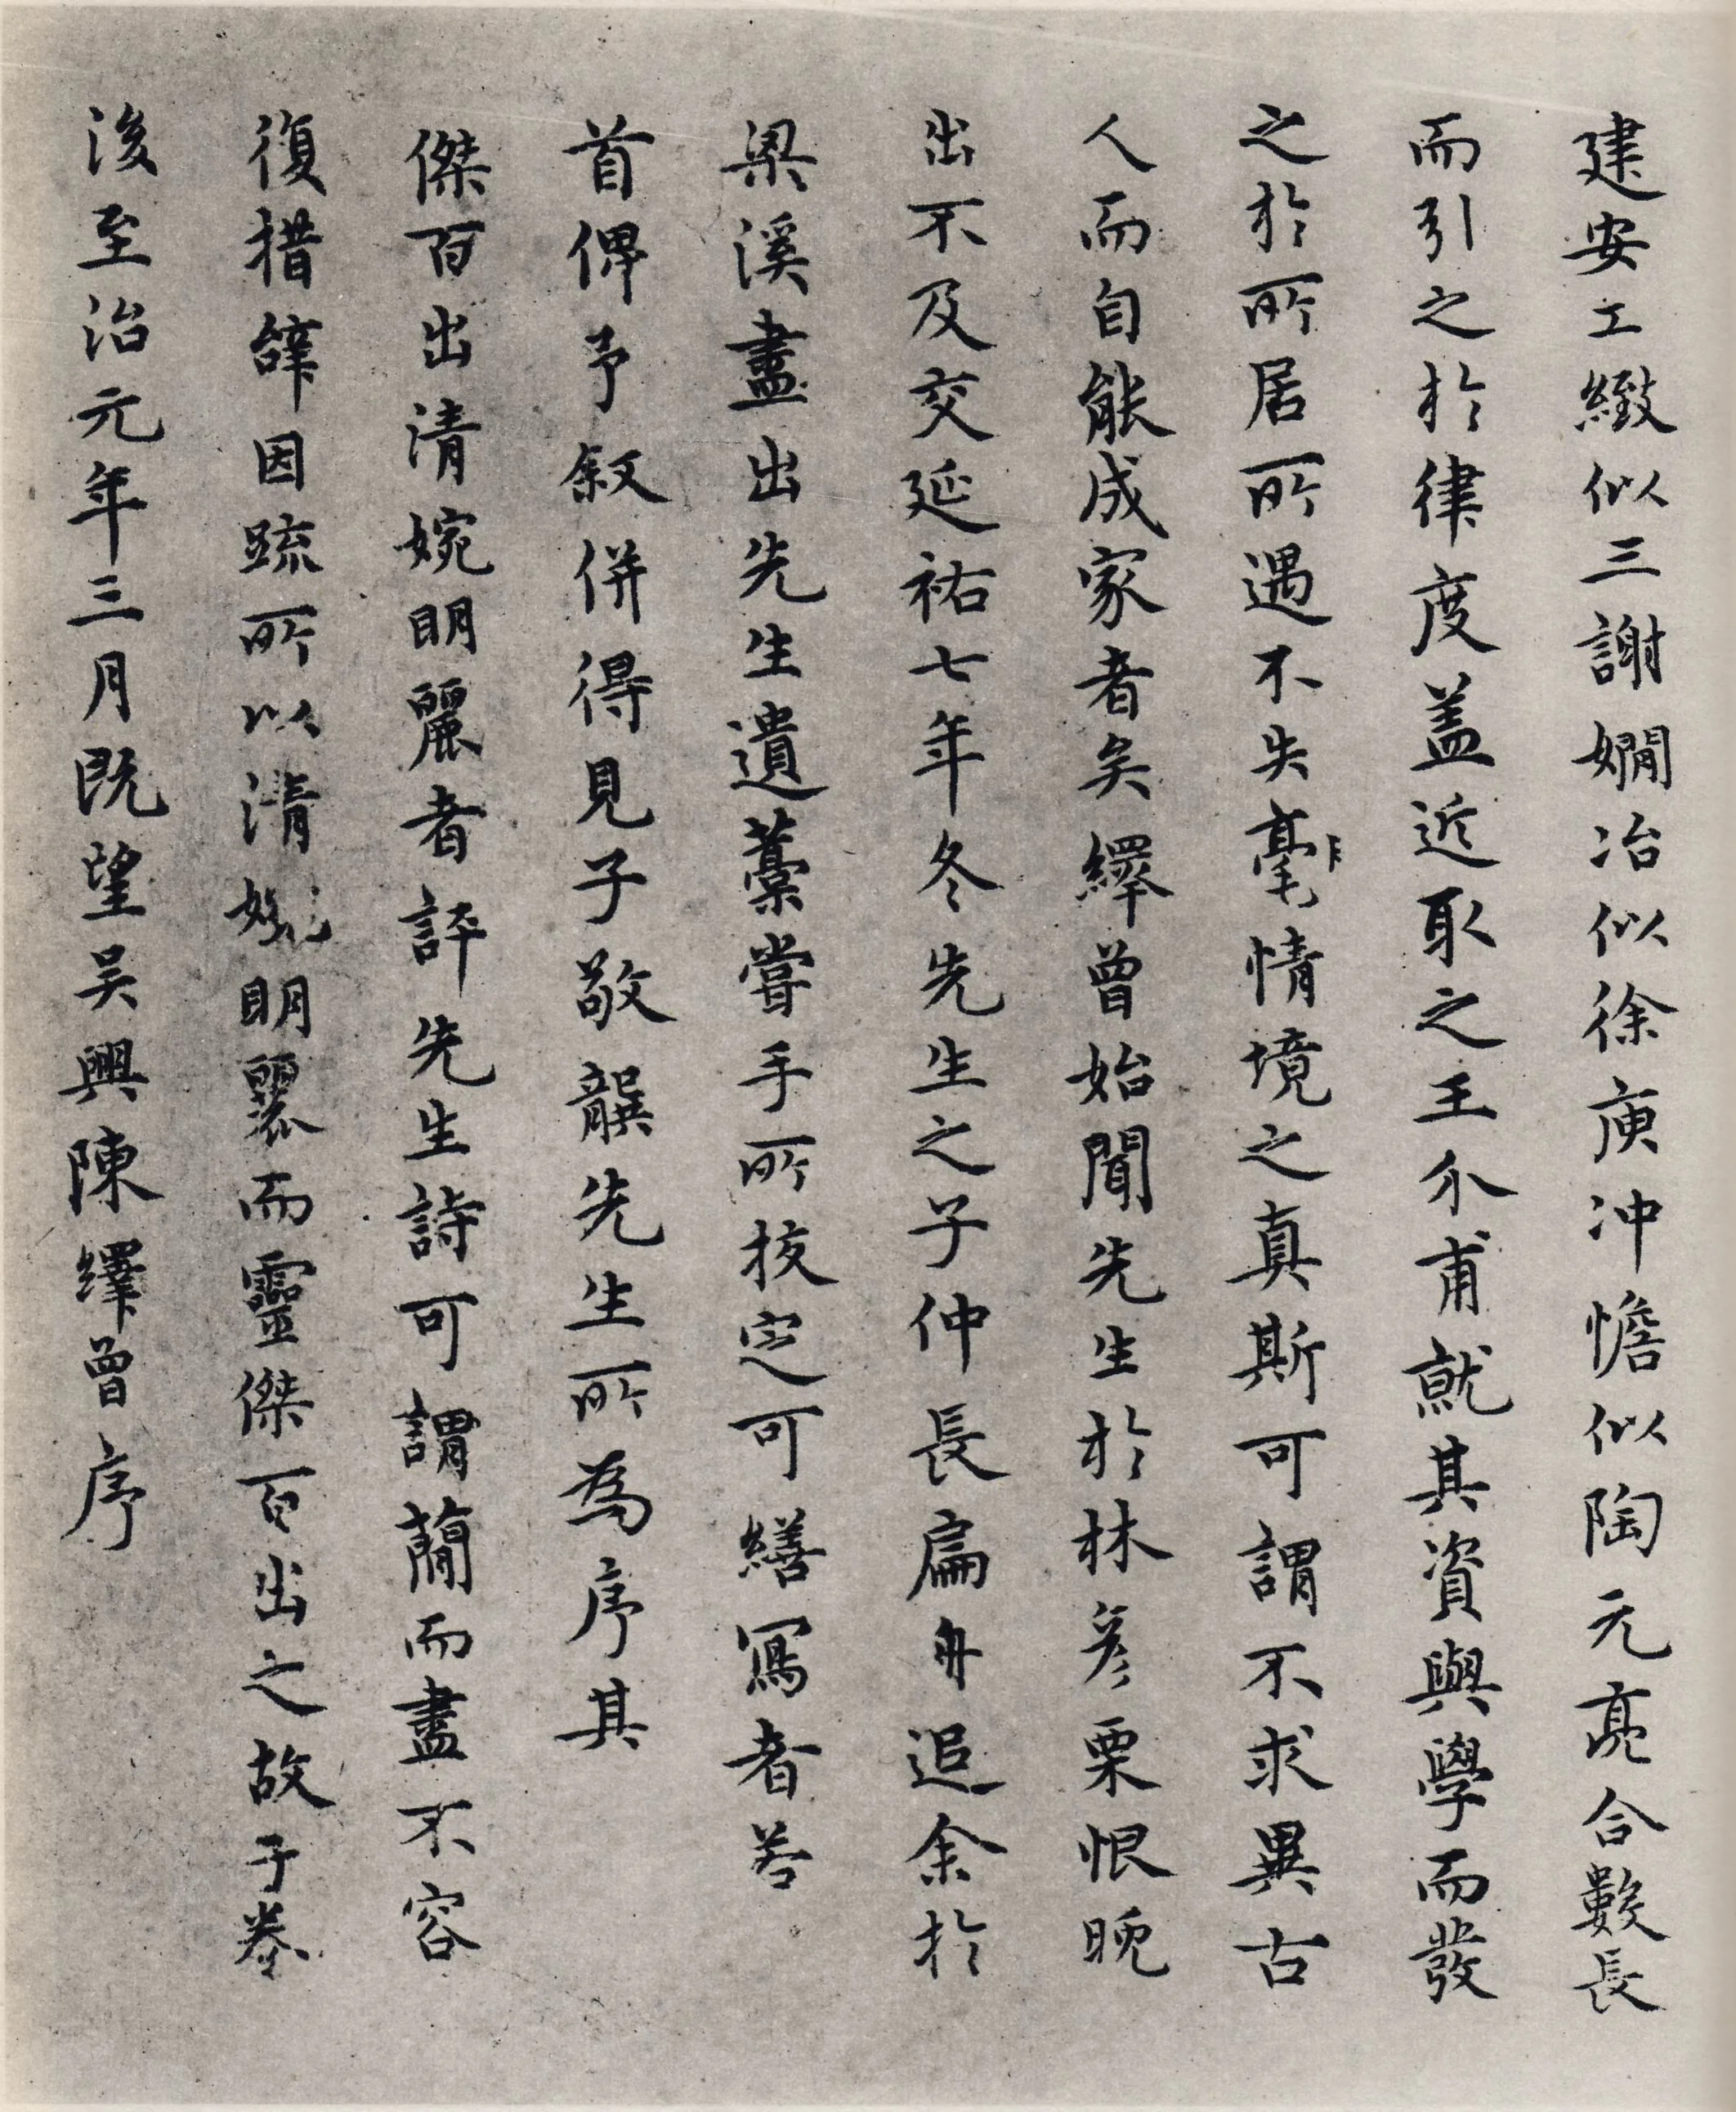 建安工緻似三謝嫺冶似徐庾冲憺似陶元亮合數長
而引之於律度盖近取之王介甫就其資與學而發
之於所居所遇不失毫情境之真斯可謂不求異古
人而自能成家者矣繹曾始聞先生於林彥栗恨晚
出不及交延祐七年冬先生之子仲長扁舟追余於
梁溪盡出先生遺藁嘗手所挍定可繕寫者若
首俾予叙併得見子敬龔先生所為序其
傑百出清婉明麗者評先生詩可謂蕑而盡不容
復措辝因疏所以清婉明麗而靈傑百出之故于卷
後至治元年三月既望吴興陳繹曾序